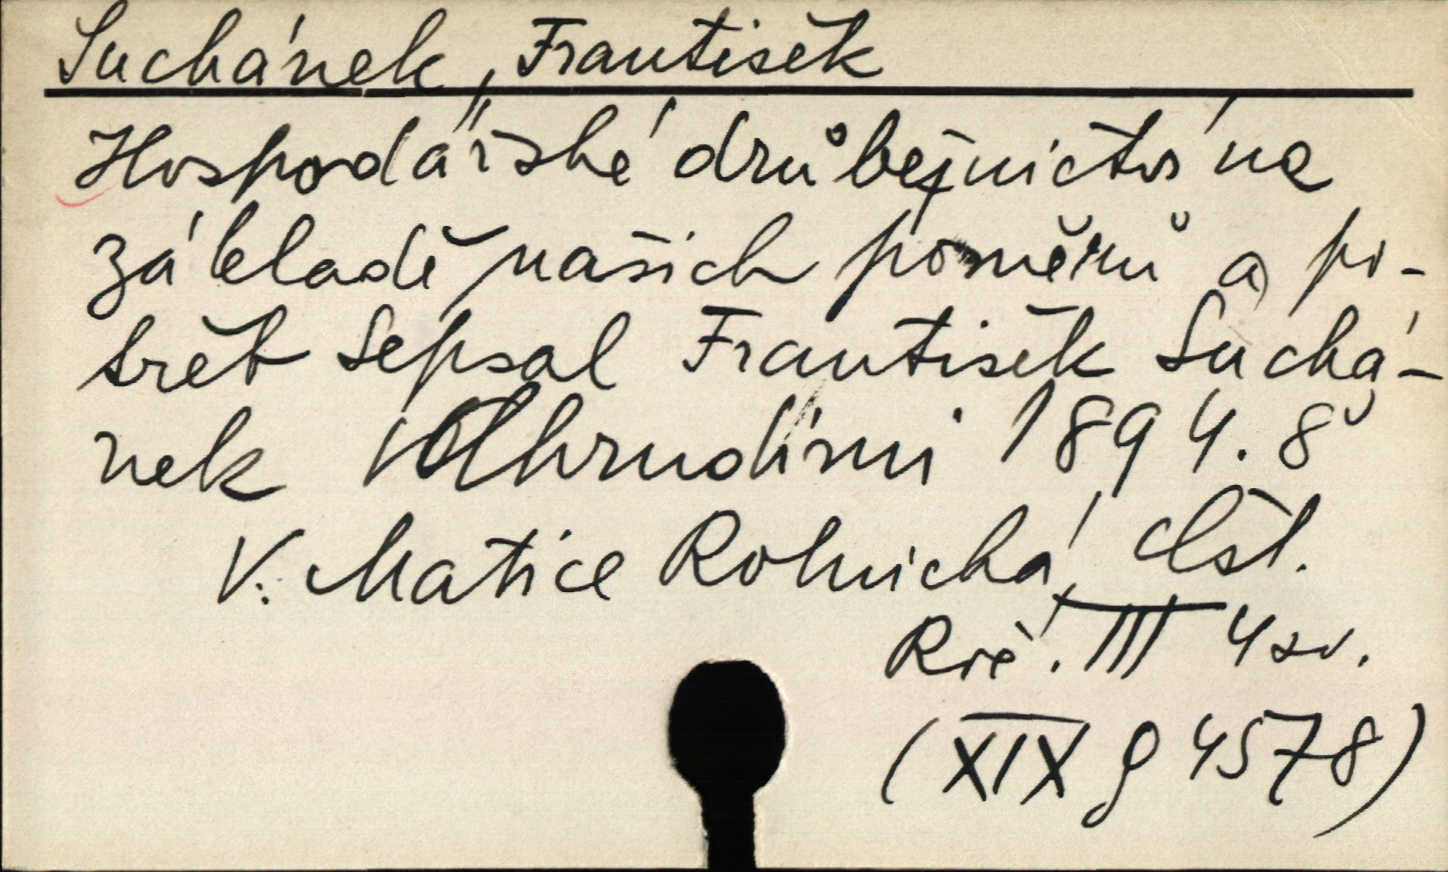 Suchánek, František
Hospodářské drůbežnictví na
základě našich poměrů a po-
třeb sepsal František Suchá-
nek V Chrudimi 1894. 8°
V: Matice Rolnická, čsl.
Roč. III 4 sv.
(XIX g 4578)